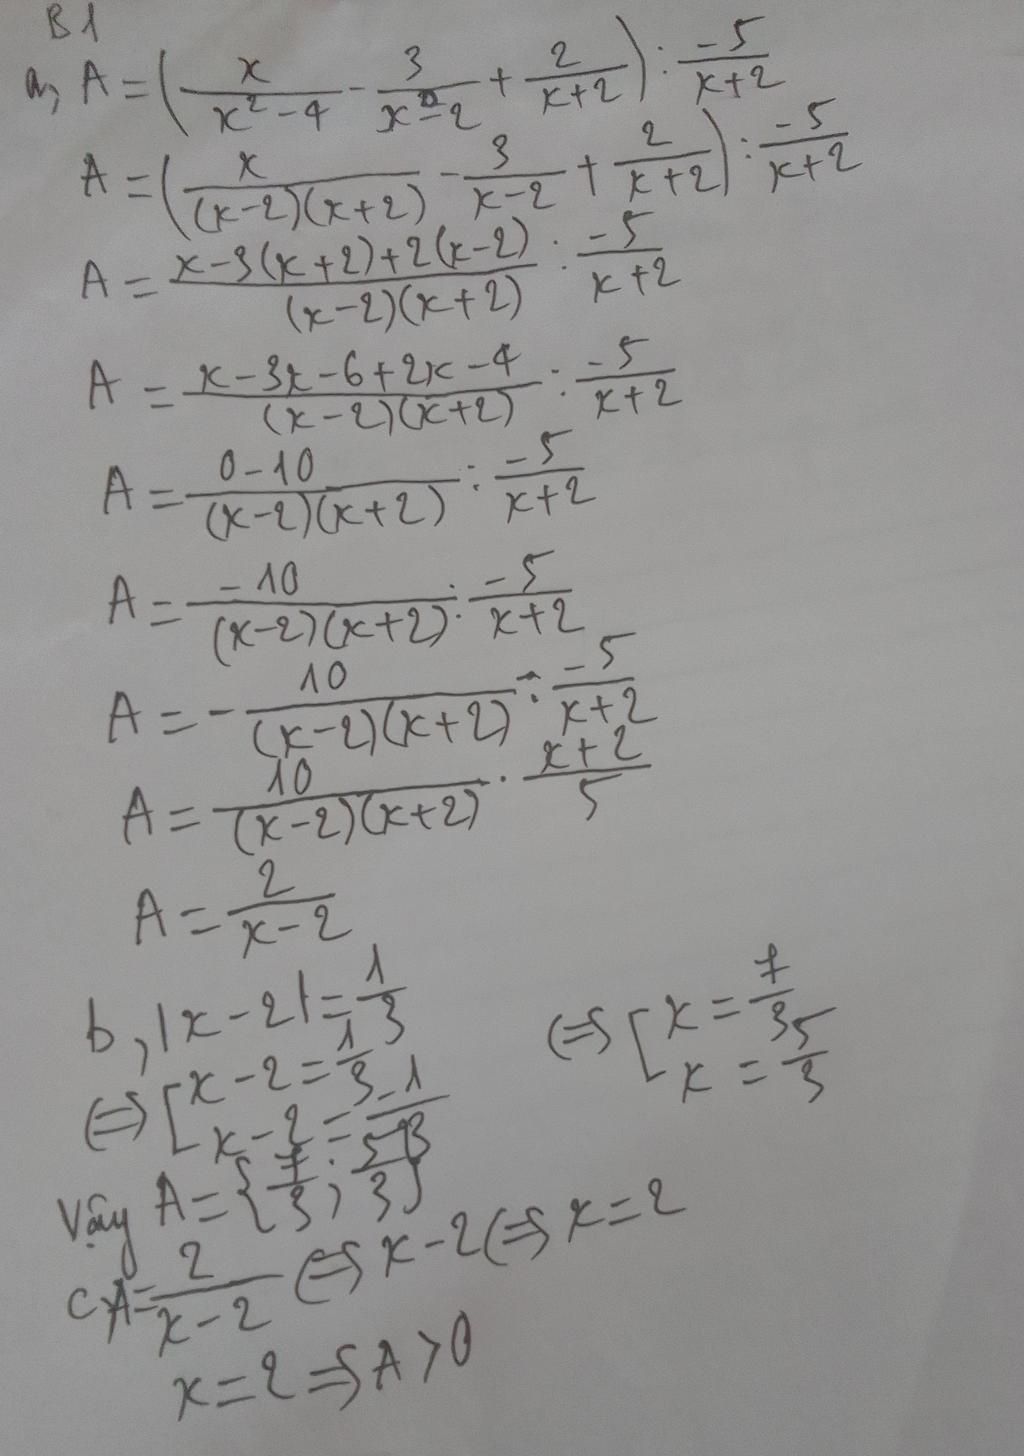 B1
a, A = (x/(x²-4) - 3/(x-2) + 2/(x+2)) : -5/(x+2)
A = (x/((x-2)(x+2)) - 3/(x-2) + 2/(x+2)) : -5/(x+2)
A = (x-3(x+2)+2(x-2))/((x-2)(x+2)) : -5/(x+2)
A = (x-3x-6+2x-4)/((x-2)(x+2)) : -5/(x+2)
A = (0-10)/((x-2)(x+2)) : -5/(x+2)
A = -10/((x-2)(x+2)) : -5/(x+2)
A = - 10/((x-2)(x+2)) : -5/(x+2)
A = 10/((x-2)(x+2)) . (x+2)/5
A = 2/(x-2)
b, |x-2| = 1/3
⇔ [ x-2 = 1/3
x-2 = -1/3
⇔ [ x = 7/3
x = 5/3
Vậy A = {7/3; 5/3}
c, A = 2/(x-2) ⇔ x-2 ⇔ x = 2
x = 2 ⇒ A > 0